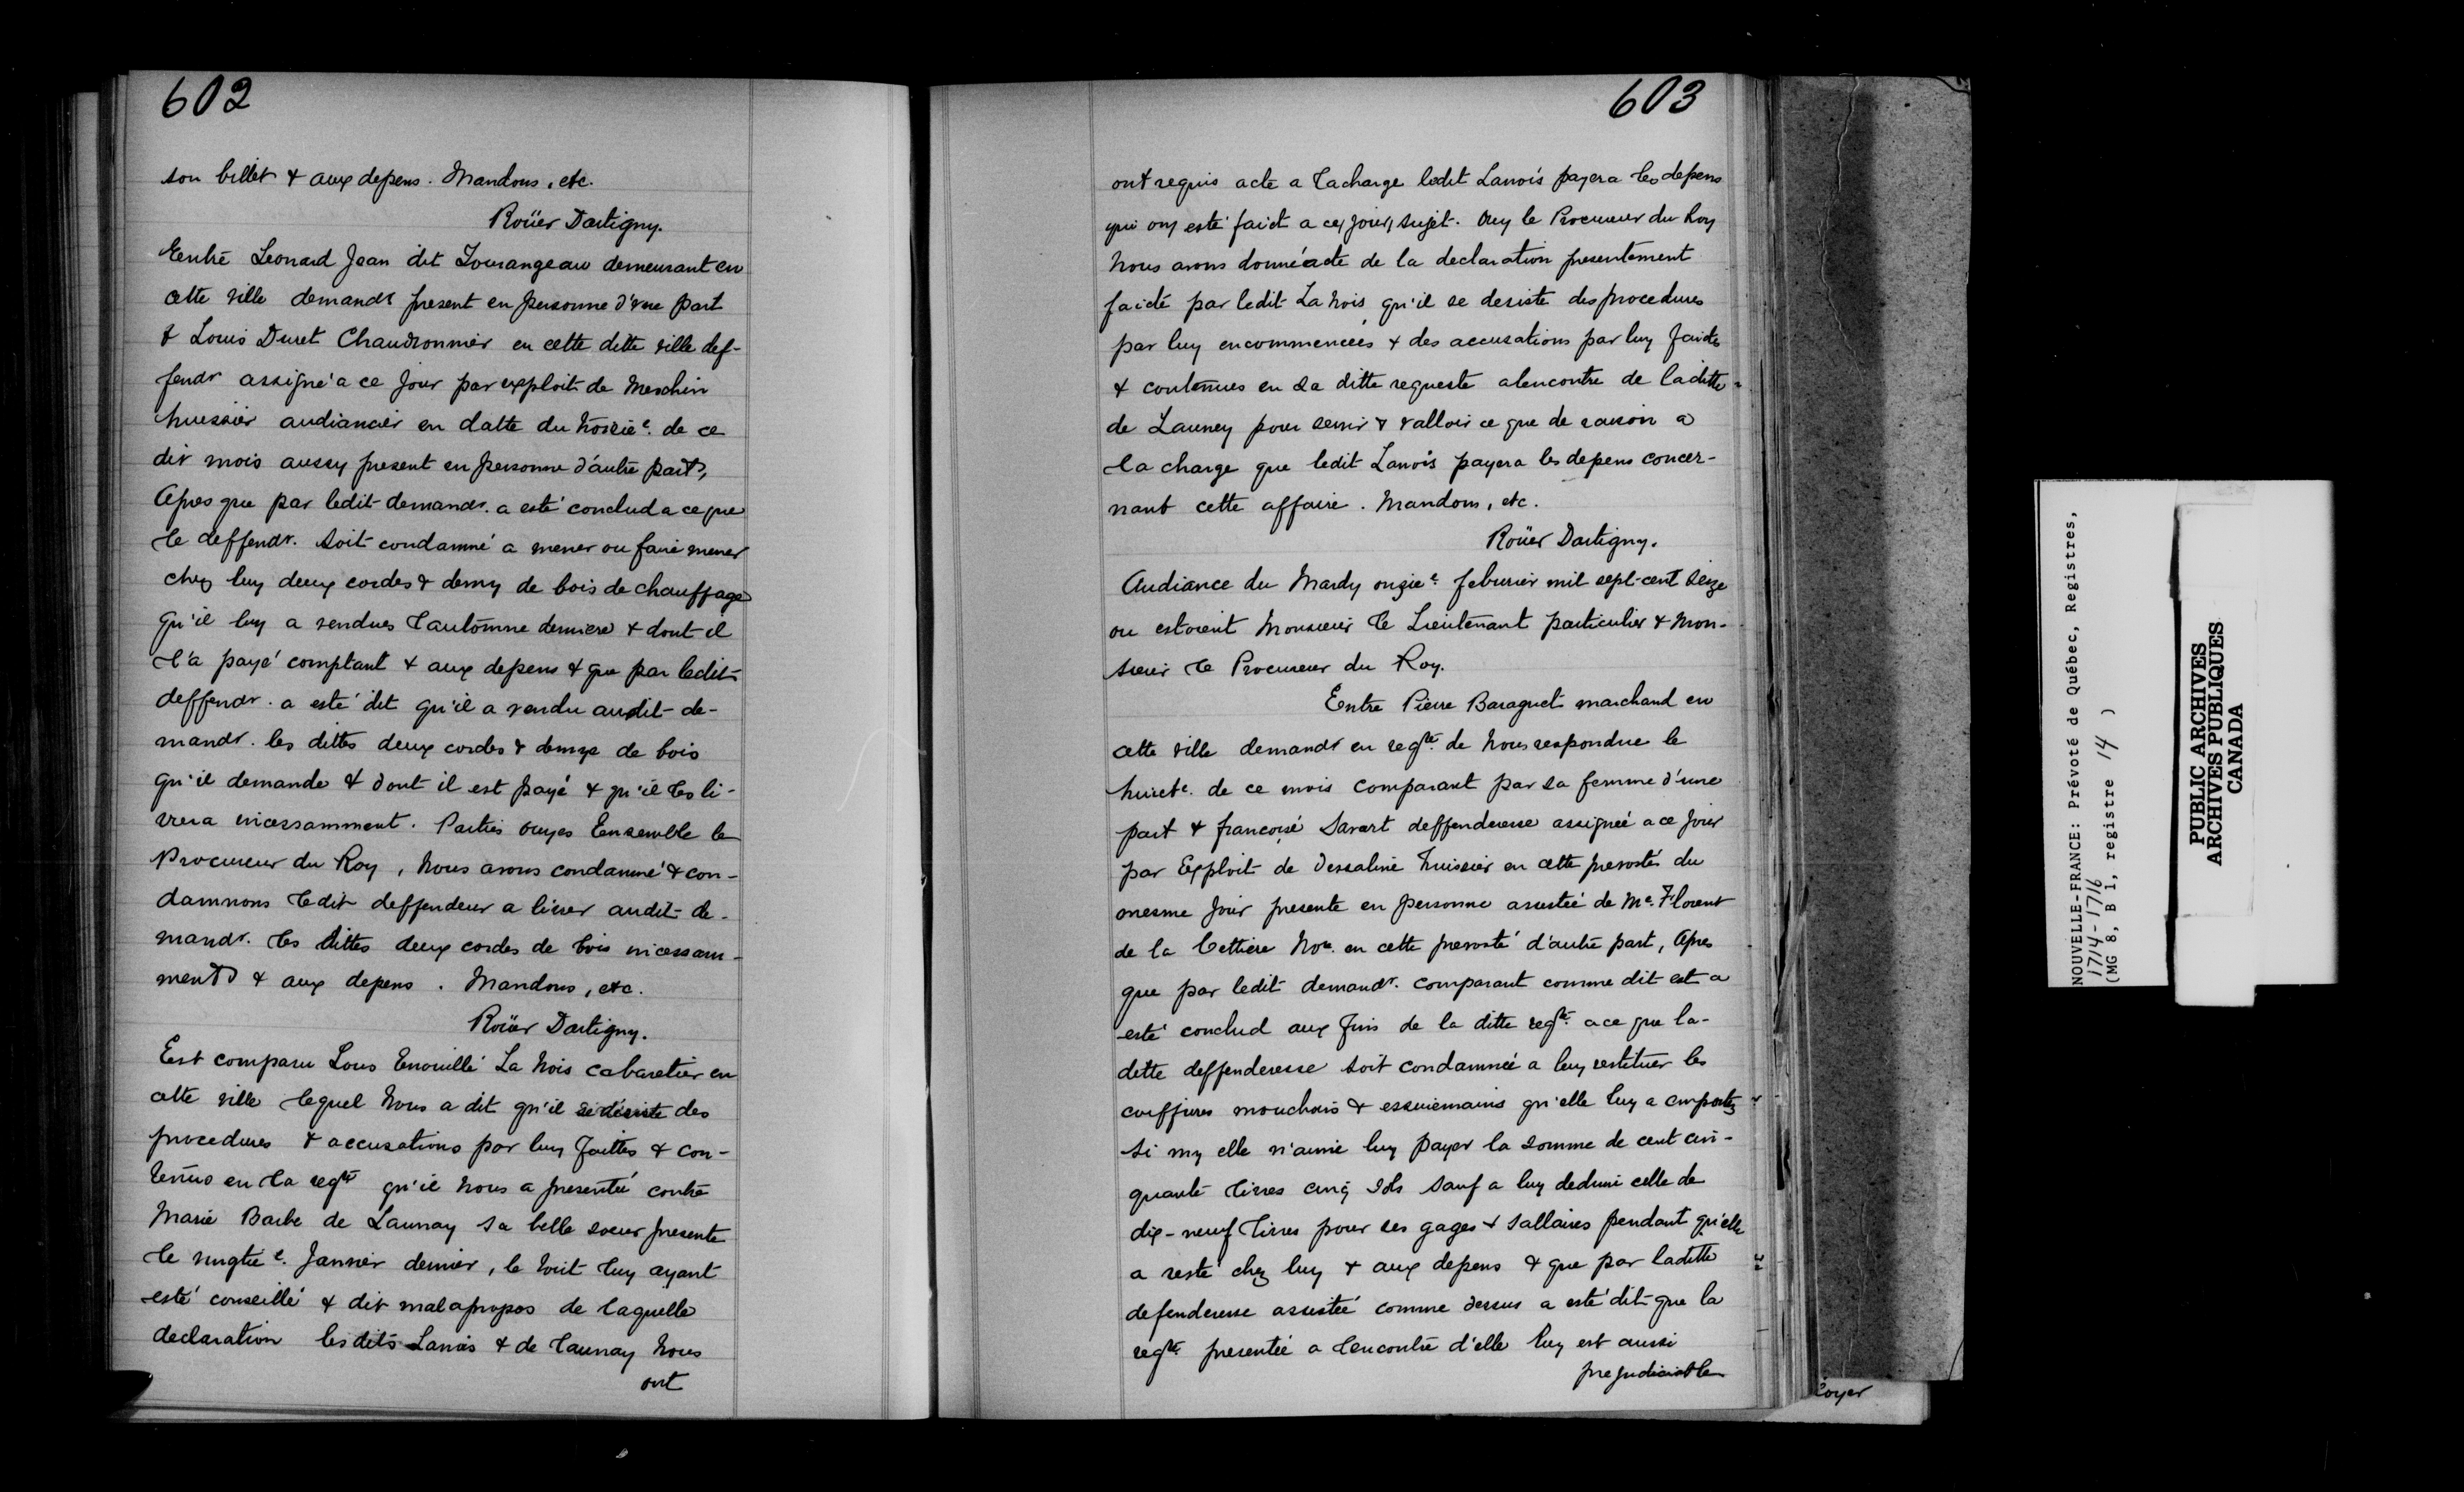 602
son billet & aux depens. Mandons, etc.
Roüer Dartigny.
Entre Leonard Jean dit Tourangeau demeurant en
cette ville demandr present en personne d'une part
& Louis Duret Chaudronnier en cette ditte ville def-
fendr assigné a ce jour par exploit de Meschin
huissier audiancier en datte du troisie. de ce
dit mois aussy present en personne d'autre part,
Apres que par ledit demandr. a esté conclud a ce que
le deffendr. soit condamné a mener ou faire mener
chez luy deux cordes & demy de bois de chauffage
qu'il luy a vendues l'automne derniere & dont il
l'a payé comptant & aux depens & que par ledit
deffendr. a esté dit qu'il a vendu audit de-
mandr. les dittes deux cordes & demye de bois
qu'il demande & dont il est payé & qu'il les li-
vrera incessamment. Parties ouyes Ensemble le
Procureur du Roy, Nous avons condamné & con-
damnons ledit deffendeur a livrer audit de-
mandr. les dittes deux cordes de bois incessam-
ment & aux depens. Mandons, etc.
Roüer Dartigny.
Est comparu Louis Enouille La Nois cabaretier en
cette ville lequel Nous a dit qu'il se désiste des
procedures & accusations par luy faittes & con-
tenües en la reqte qu'il Nous a presentée contre
Marie Barbe de Launay sa belle soeur presente
le vingtie. Janvier dernier, le tout luy ayant
esté conseillé & dit mal apropos de laquelle
declaration lesdits Lanois & de Launay Nous
ont
603
ont requis acte a la charge ledit Lanois payera les depens
qui ont esté faict a ce, jour, sujet. Ouy le Procureur du Roy
Nous avons donné acte de la declaration presentement
faicte par ledit La Nois qu'il se desiste des procedures
par luy encommencées & des accusations par luy faictes
& contenues en sa ditte requeste alencontre de laditte
de Launey pour servir & valloir ce que de raison a
la charge que ledit Lanois payera les depens concer-
nant cette affaire. Mandons, etc.
Roüer Dartigny.
Audiance du Mardy onzie. feburier mil sept-cent seize
ou estoient Monsieur le Lieutenant particulier & Mon-
sieur le Procureur du Roy.
Entre Pierre Baraguet marchand en
cette ville demandr en reqte. de Nous respondue le
huicte. de ce mois comparant par sa femme d'une
part & françoise Savart deffenderesse assignée a ce jour
par Exploit de Dessaline huissier en cette prevosté du
mesme jour presente en personne assistée de Me. Florent
de la Cettiere Nore. en cette prevosté d'autre part, Apres
que par ledit demandr. comparant comme dit est a
esté conclud aux fins de la ditte reqte. a ce que la-
dette deffenderesse soit condamnée a luy restituer les
coiffures mouchois & essuiemains qu'elle luy a emportez
si my elle n'aime luy payer la somme de cent cin-
quante livres cinq sols sauf a luy deduire celle de
dix-neuf livres pour ses gages & sallaires pendant qu'elle
a resté chez luy & aux depens & que par laditte
defenderesse assistée comme dessus a esté dit que la
reqte. presentée a lencontre d'elle luy est aussi
prejudiciable
loyer
NOUVELLE-FRANCE: Prévoté de Québec, Registres,
1714-1716
(MG 8, B 1, registre 14 )
PUBLIC ARCHIVES
ARCHIVES PUBLIQUES
CANADA